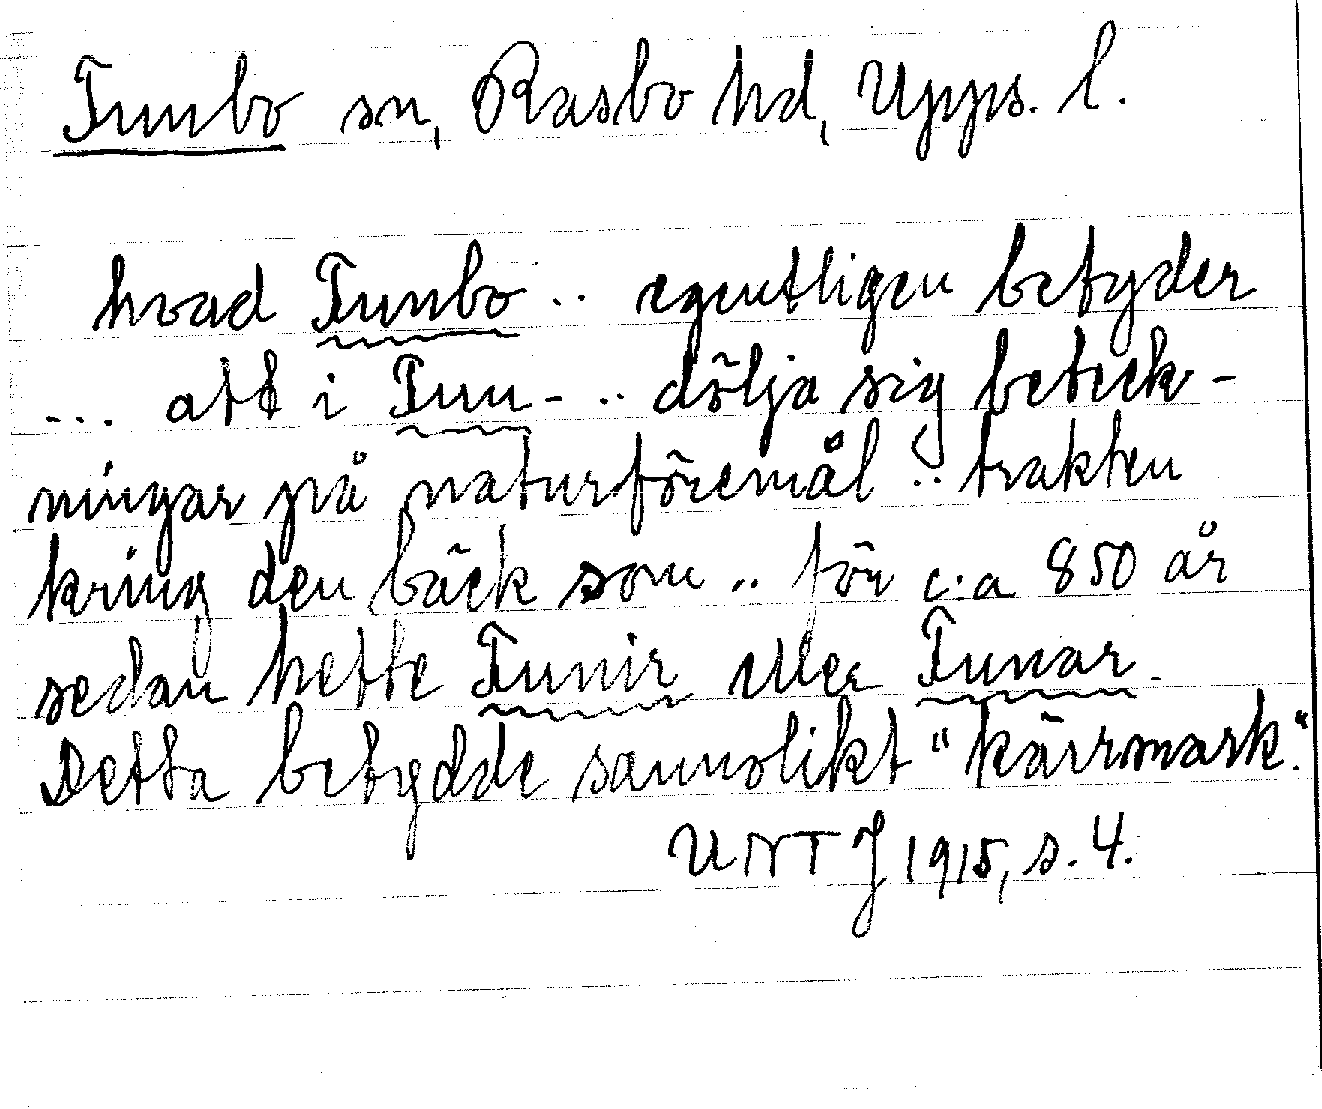 Funbo sn, Rasbo hd, Upps. l.
hvad Funbo .. egentligen betyder
... att i Fun- .. dölja sig beteck-
ningar på naturföremål .. trakten
kring den bäck som .. för c:a 850 år
sedan hette Funir eller Funar.
Detta betydde sannolikt "kärrmark".
UNTJ 1915, s. 4.